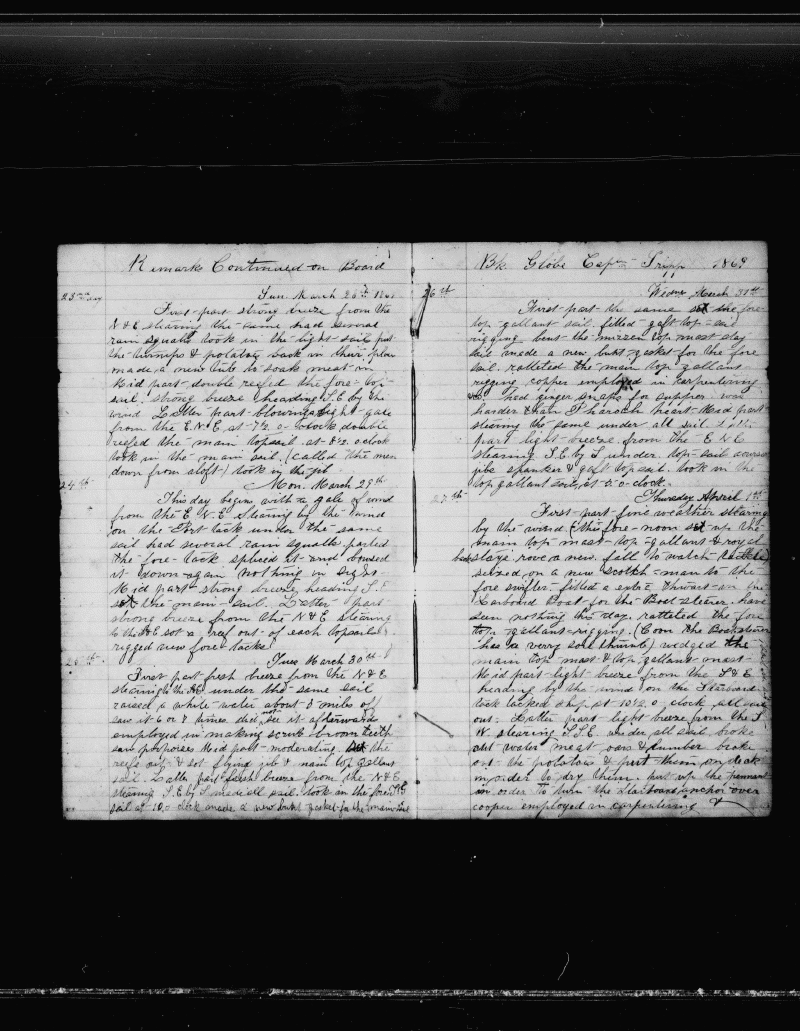 Remarks Continued on Board
23rd day
Sun. March 28th 1869
First part strong breeze from the
N & E stearing the same had several
rain squalls took in the light sail put
the turnips & potatoes back in their place
made a new tub to soak meat in
Mid part double reefed the fore-top-
sail. strong breeze heading S.E by the
wind Latter part blowing a light gale
from the E N E. at 7½ o-clock double
reefed the main topsail at 8½ o.clock
took in the main sail. (called the men
down from aloft) took in the jib
24th
Mon. March 29th
This day begins with a gale of wind
from the E N E stearing by the wind
on the Port tack under the same
sail had several rain squalls parted
the fore-tack spliced it and boused
it down again nothing in sight
Mid part strong breeze heading S.E
set the main-sail. Latter part
strong breeze from the N & E stearing
to the S.E sot a reef out of each topsails
rigged new fore-tacks
25th
Tues March 30th
First part fresh breeze from the N & E
stearing to the SE under the same sail
raised a white water about 5 miles off
saw it 6 or 7 times did not see it afterwards
employed in making scrub broom teeth
saw purposes Mid part moderating the
reefs out & sot flying jib & main top gallant
sail. Latter part fresh breeze from the N & E
stearing S.E by S under all sail. took in the fore T.G.
sail at 10.o clock made a new bunt gasket for the main sail
Bk. Globe Captn Tripp 1869
26th
Wednes March 31st
First-part the same set the fore-
top gallant sail, filled gaft top-sail
rigging bent the mizzen top mast stay
sail made a new bunt gasket for the fore
sail. rattled the main top gallant
rigging copper employed in carpentering
&c. had ginger snaps for supper was
harder than Pharaoh heart Mid part
stearing the same under all sail Latter
part light breeze from the E N E
stearing S.E by S under top-sail courses
jibs spanker & gaft top sail. took in the
top gallant sails, at 5. o-clock.
27th
Thursday April 1st
First-part fine weather stearing
by the wind (this fore-noon set up the
main top-mast-top-gallant & royal
back stays rove a new fall to watch tackle
seized on a new scotch-man to the
fore swifter. fitted a extra thwart in the
Larboard Boat for the Boatsteerer. have
seen nothing this day. rattled the fore
top-gallant-rigging. (Coon the Boatsteerer
has a very soil thumb) wedged the
main top mast & top gallant mast-
Mid part light breeze from the S & E
heading by the wind on the Starboard
tack tacked ship at 10½ o, clock all sail
out. Latter part light breeze from the S
W. stearing S.S.E under all sail broke
out water meat oars & lumber broke
out the potatoes & put them on deck
in order to dry them. put up the pennant
in order to turn the starboard anchor over
cooper employed in carpentering &